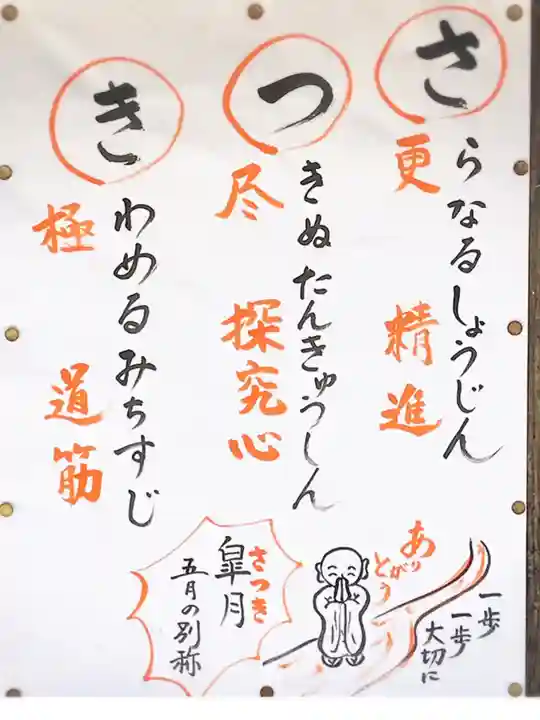 さらなるしょうじん
更 精進
つきぬたんきゅうしん
尽 探究心
きわめるみちすじ
極 道筋
一歩
一歩
大切に
ありがとう
さつき
皐月
五月の別称